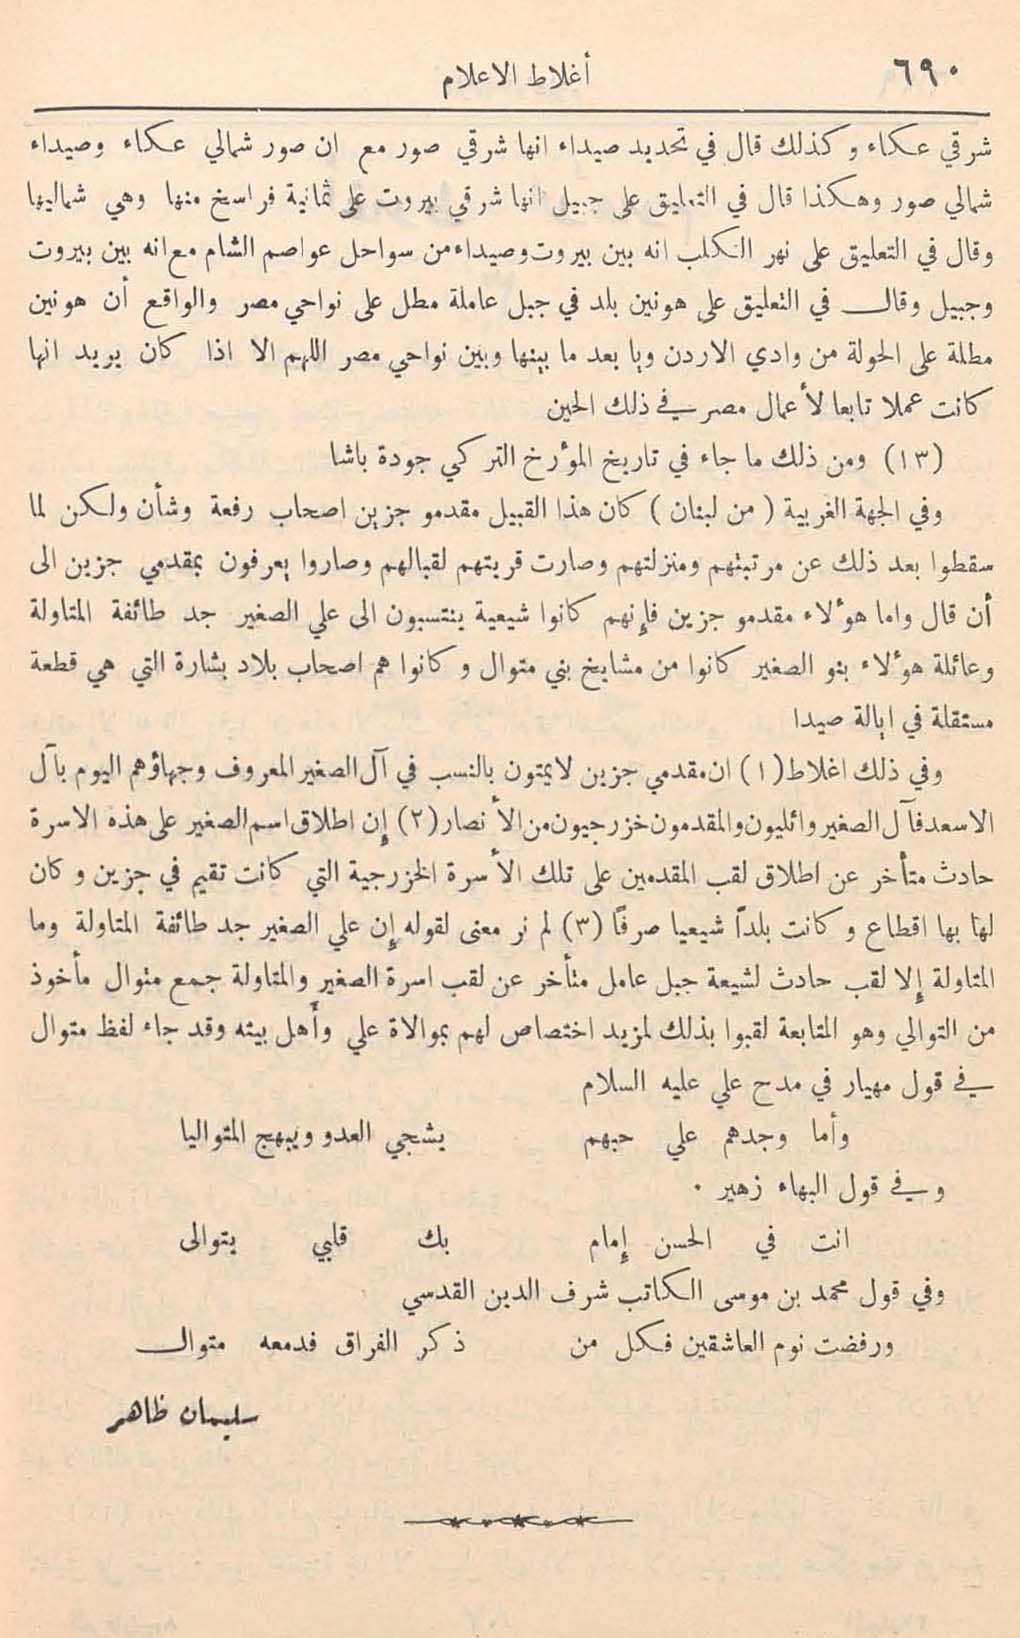 ٦٩٠
أغلاط الاعلام
شرقي عكاء وكذلك قال في تحديد صيداء انها شرقي صور مع ان صور شمالي عكاء وصيداء
شمالي صور وهكذا قال في التعليق على جبيل انها شرقي بيروت على ثمانية فراسخ منها وهي شماليها
وقال في التعليق على نهر الكلب انه بين بيروت وصيداء من سواحل عواصم الشام مع انه بين بيروت
وجبيل وقال في التعليق على هونين بلد في جبل عاملة مطل على نواحي مصر والواقع أن هونين
مطلة على الحولة من وادي الاردن ويا بعد ما بينها وبين نواحي مصر اللهم الا اذا كان يريد انها
كانت عملا تابعا لأعمال مصر في ذلك الحين
(١٣) ومن ذلك ما جاء في تاريخ المؤرخ التركي جودة باشا
وفي الجهة الغربية (من لبنان) كان هذا القبيل مقدمو جزين اصحاب رفعة وشأن ولكن لما
سقطوا بعد ذلك عن مرتبتهم ومنزلتهم وصارت قريتهم لقبالهم وصاروا يعرفون بمقدمي جزين الى
أن قال واما هؤلاء مقدمو جزين فإنهم كانوا شيعية ينتسبون الى علي الصغير جد طائفة المتاولة
وعائلة هؤلاء بنو الصغير كانوا من مشايخ بني متوال وكانوا هم اصحاب بلاد بشارة التي هي قطعة
مستقلة في ايالة صيدا
وفي ذلك اغلاط (١) ان مقدمي جزين لا يمتون بالنسب في آل الصغير المعروف وجهاؤهم اليوم بآل
الاسعد فآل الصغير وائليون والمقدمون خزرجيون من الأنصار (٢) إن اطلاق اسم الصغير على هذه الاسرة
حادث متأخر عن اطلاق لقب المقدمين على تلك الأسرة الخزرجية التي كانت تقيم في جزين وكان
لها بها اقطاع وكانت بلداً شيعيا صرفًا (٣) لم نر معنى لقوله إن علي الصغير جد طائفة المتاولة وما
المتاولة إلا لقب حادث لشيعة جبل عامل متأخر عن لقب اسرة الصغير والمتاولة جمع متوال مأخوذ
من التوالي وهو المتابعة لقبوا بذلك لمزيد اختصاص لهم بموالاة علي وأهل بيته وقد جاء لفظ متوال
في قول مهيار في مدح علي عليه السلام
وأما وجدهم علي حبهم يشجي العدو ويبهج المتواليا
وفي قول البهاء زهير .
انت في الحسن إمام بك قلبي يتوالى
وفي قول محمد بن موسى الكاتب شرف الدين القدسي
ورفضت نوم العاشقين فكل من ذكر الفراق فدمعه متوال
سليمان ظاهر